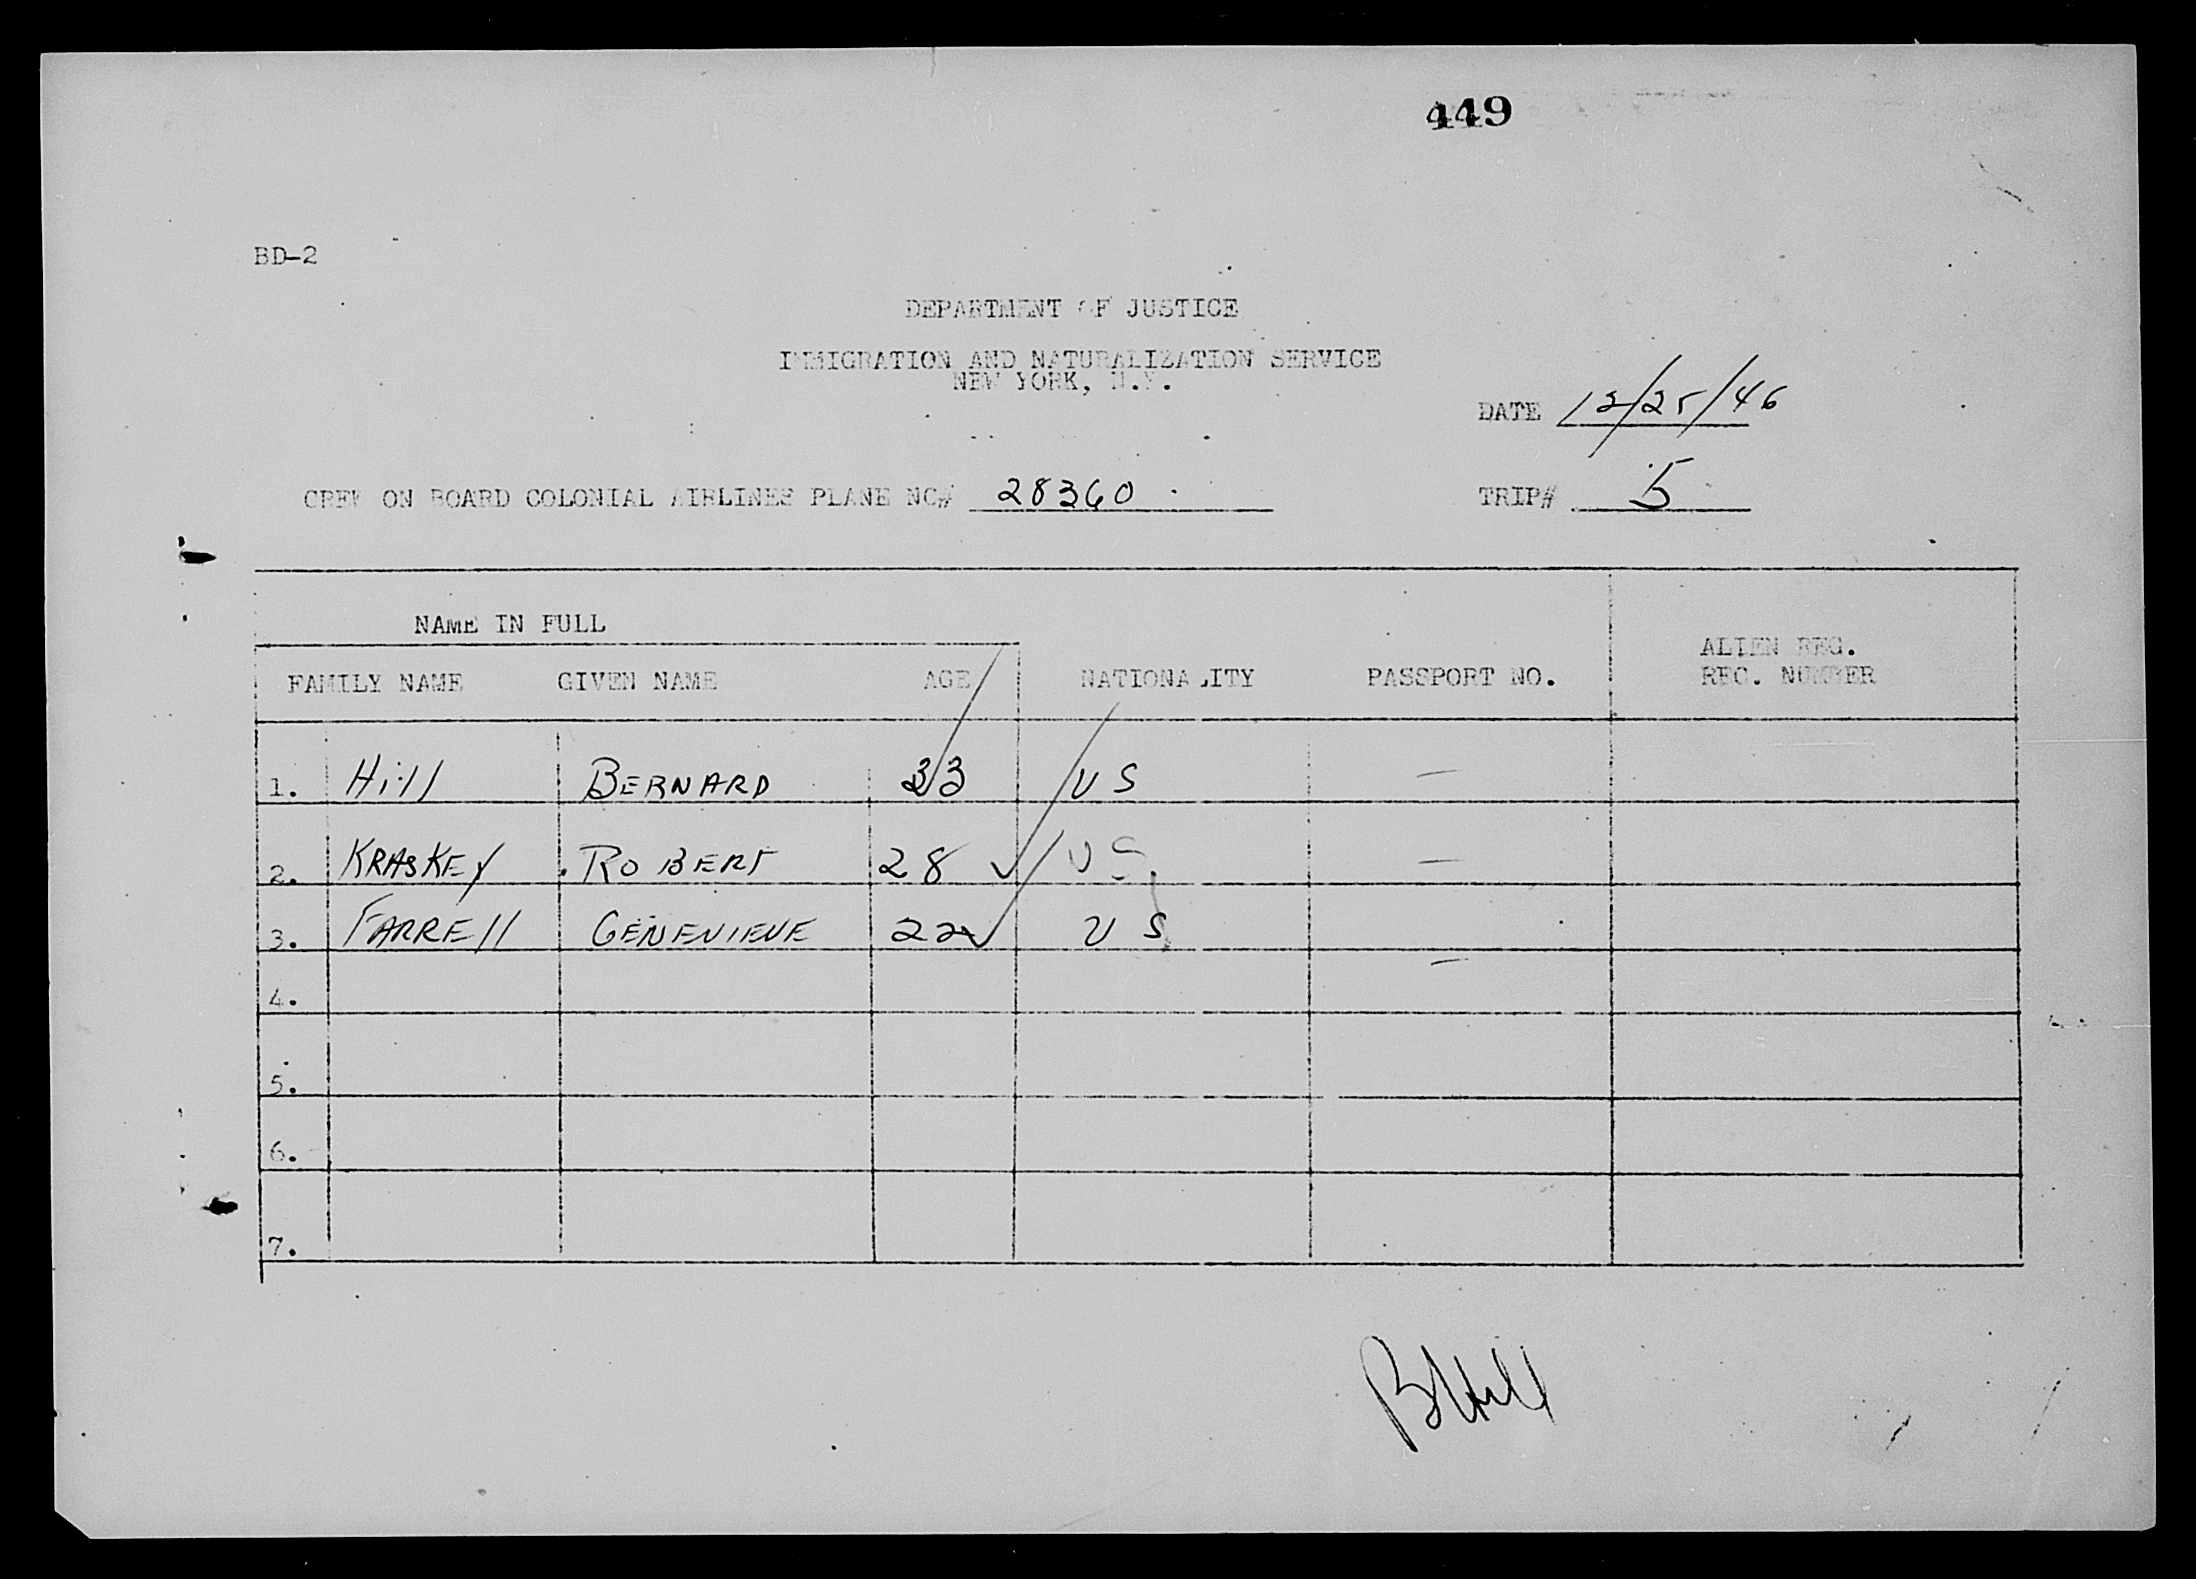 449
BD-2
DEPARTMENT OF JUSTICE
IMMIGRATION AND NATURALIZATION SERVICE
NEW YORK, N.Y.
DATE 12/25/46
CREW ON BOARD COLONIAL AIRLINES PLANE NC# 28360
TRIP# 5
NAME IN FULL
FAMILY NAME GIVEN NAME AGE NATIONALITY PASSPORT NO. ALIEN REG.
REC. NUMBER
1. Hill BERNARD 33 US —
2. KRASKEY ROBERT 28 ✓ US —
3. FARRELL GENEVIEVE 22 ✓ US —
4.
5.
6.
7.
B Hill